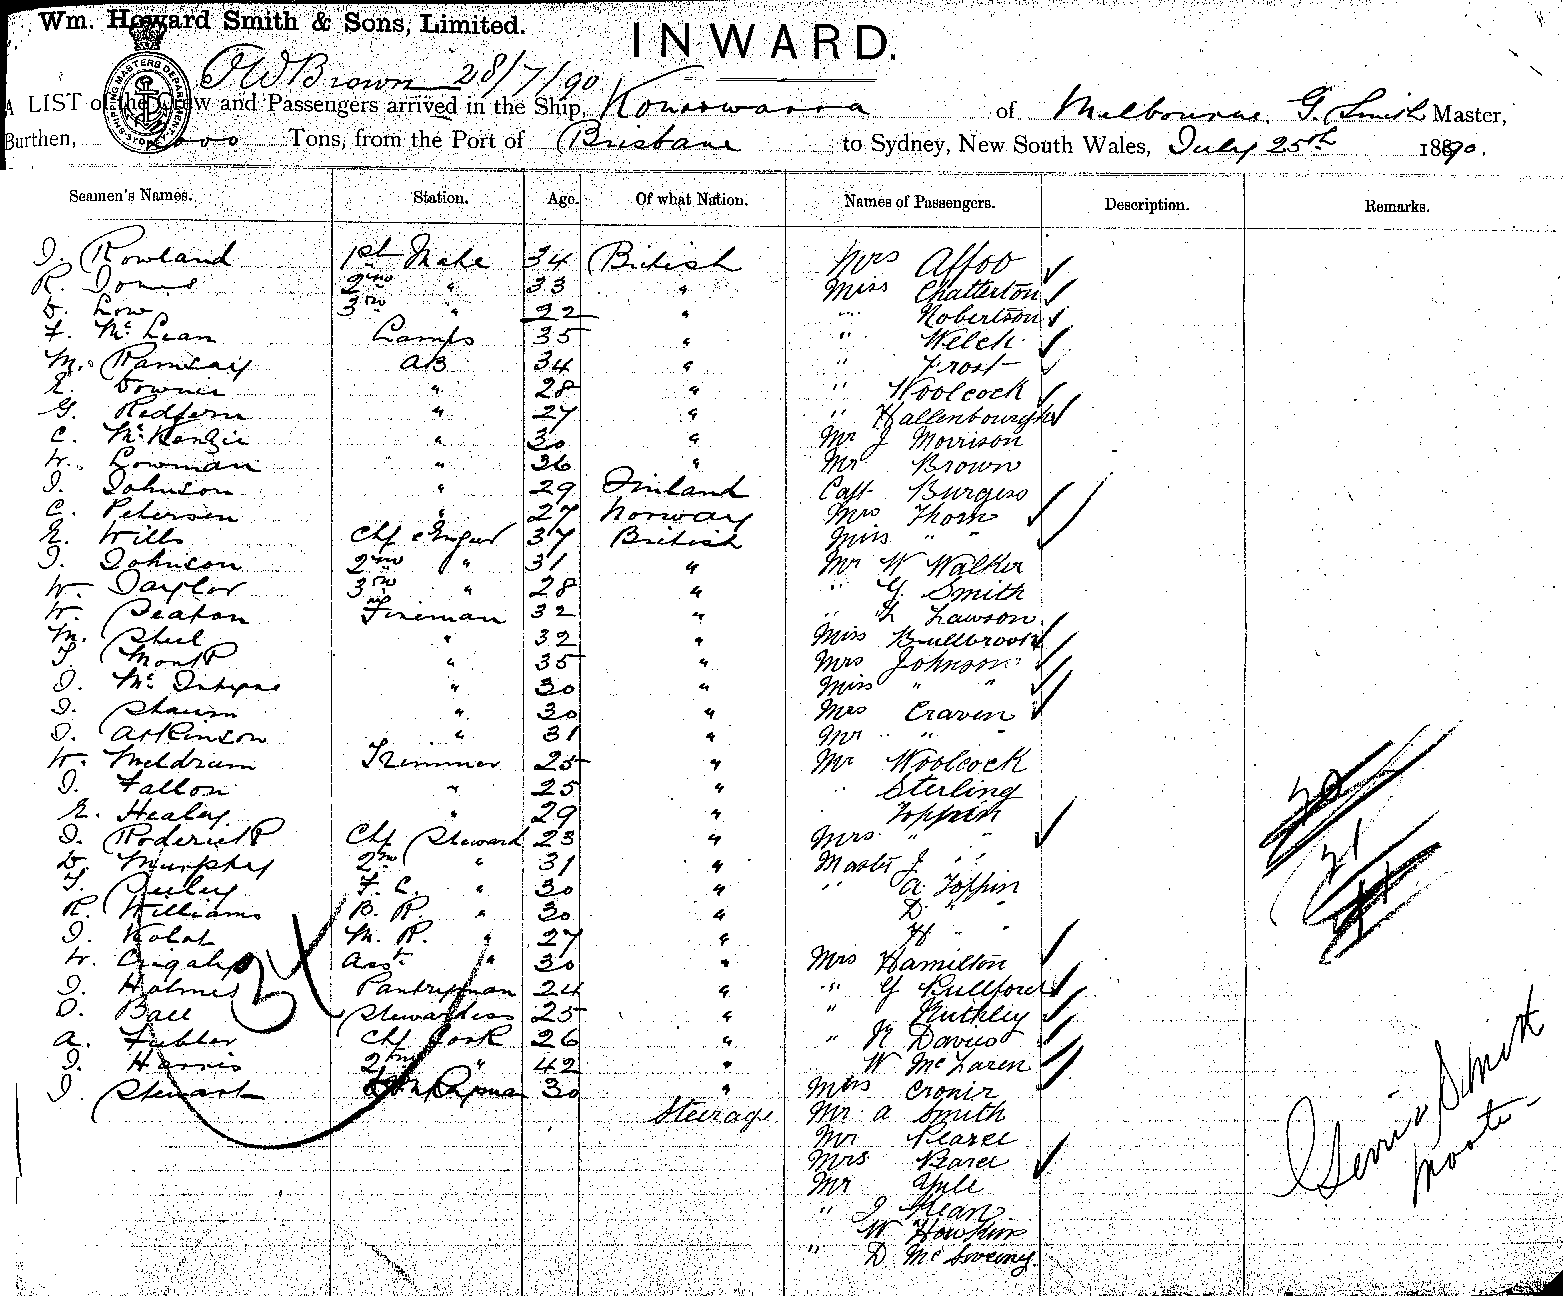 Wm. Howard Smith & Sons, Limited.
INWARD.
SHIPPING MASTERS DEPARTMENT
28/7/90
A LIST of the Crew and Passengers arrived in the Ship, Konoowarra of Melbourne, G. Smith Master,
Burthen, Tons, from the Port of Brisbane to Sydney, New South Wales, July 25th 1890.
Seamen's Names. Station. Age. Of what Nation. Names of Passengers. Description. Remarks.
J. Rowland 1st Mate 34 British Mrs Affoo
R. Jones 2nd " 33 " Miss Chatterton
D. Low 3rd " 22 " " Robertson
F. McLean Lamps 35 " " Welch
M. Ramsay AB 34 " " Frost
E. Downer " 28 " " Woolcock
G. Redfern " 27 " " Hallenbourgh
C. McKenzie " 30 " Mr J Morrison
W. Lowman " 36 " Mr Brown
J. Johnson " 29 Finland Capt Burgess
C. Petersen " 27 Norway Mrs Thorn
E. Wills Chf Engnr 37 British Miss " "
J. Johnson 2nd " 31 " Mr W Walker
W. Taylor 3rd " 28 " " G. Smith
W. Seaton Fireman 32 " " Lawson
M. Steel " 32 " Miss Bullbrook
T. Monk " 35 " Mrs Johnson
J. McIntyre " 30 " Miss " "
J. " 30 " Mrs Craven
J. Atkinson " 31 " Mr " "
W. Meldrum Trimmer 25 " Mr Woolcock
J. Fallon " 25 " " Sterling
E. Healey " 29 " Toppin
J. Roderick Chf Steward 23 " Mrs " "
D. Murphy 2nd " 31 " Master J " "
T. F.C. " 30 " " A Toppin
R. Williams B.R. " 30 " D " "
J. M.R. " 27 " H " "
W. Asst " 30 " Mrs Hamilton
J. Holmes Pantryman 24 " " G Bullford
D. Ball Stewardess 25 " "
A. Chf Cook 26 " " R Davies
J. Harris 2nd " 42 " W McLaren
J. Stewart 30 " Cronir
Steerage Mr A Smith
Mr Pearce
Mrs Pearce
Mr Yule
" J
W Hawkins
" D McSweeney
34
30
31
Smith
Master